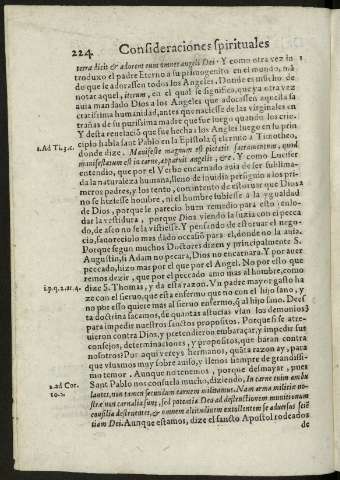 224 Consideraciones spirituales
terra dicit & adorent eum omnes angeli Dei. Y como otra vez in
troduxo el padre Eterno a su primogenito en el mundo, mã
do que le adorassen todos los Angeles. Donde es mucho de
notar aquel, iterum, en el qual se significa, que ya otra vez
auia mandado Dios a los Angeles que adorassen aquella sa
cratissima humanidad, antes que naciesse de las virginales en
trañas de su purissima madre que fue luego quando los crio.
Y desta reuelaciõ que fue hecha a los Angeles luego en su prin
2. Ad Ti. 3. c. cipio habla sant Pablo en la Epistola q̃ escriuio a Timotheo,
donde dize. Manifeste magnum est pietatis sacramentum, quod
manifestatum est in carne, apparuit angelis, &c. Y como Lucifer
entendio, que por el Verbo encarnado auia de ser sublima-
da la naturaleza humana, lleno de inuidia persiguio a los pri-
meros padres, y los tento, con intento de estoruar que Dios
no se hiziesse hombre, ni el hombre subiesse a la ygualdad
de Dios, porque le parecio buen remedio para esto, enlo-
dar la vestidura, porque Dios viendo la suzia con el pecca
do, de asco no se la vistiesse. Y pensando de estoruar el nego-
cio, fauoreciolo mas dado occasiõ para el, donde no la auia.
Porque segun muchos Doctores dizen y principalmente S.
Augustin, si Adam no pecara, Dios no encarnara. Y por auer
peccado, hizo mas por el que por el Angel. No por esso que
remos dezir, que por el peccado amo mas al hombre, como
1. p. q. 2. ar. 4. dize S. Thomas, y da esta razon. Vn padre mayor gasto ha
ze con el sieruo, que esta enfermo que no con el hijo sano, y
no por esso quiere mas al sieruo enfermo, q̃ al hijo sano. Des
ta doctrina sacamos, de quantas astucias vsan los demonios
para impedir nuestros sanctos propositos. Porque si se atre-
uieron contra Dios, y pretendieron embaraçar, e impedir sus
consejos, determinaciones, y propositos, que haran contra
nosotros? Por aqui vereys hermanos, quãta razon ay, para
que viuamos muy sobre auiso, y llenos siempre de grandissi-
mo temor. Aunque no tenemos, porque desmayar, pues
2. ad Cor. 10. a. Sant Pablo nos consuela mucho, diziendo, In carne enim ambu
lantes, non tamen secundum carnem militamus. Nam arma militiæ no-
stræ non carnalia sunt, sed potentia Deo ad destructionem munitionum
consilia destruentes, & omnem altitudinem extollentem se aduersus sciẽ
tiam Dei. Aunque estamos, dize el sancto Apostol rodeados
de